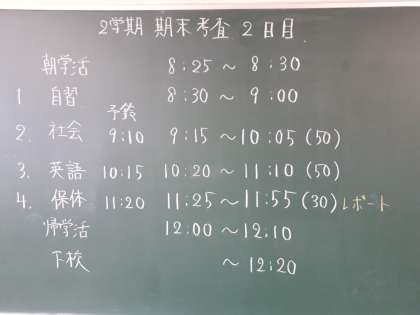 2学期 期末考査 2日目
朝学活 8:25 〜 8:30
1 自習 8:30 〜 9:00
予鈴
2. 社会 9:10 9:15 〜 10:05 (50)
3. 英語 10:15 10:20 〜 11:10 (50)
4. 保体 11:20 11:25 〜 11:55 (30) レポート
帰学活 12:00 〜 12.10
下校 〜 12:20